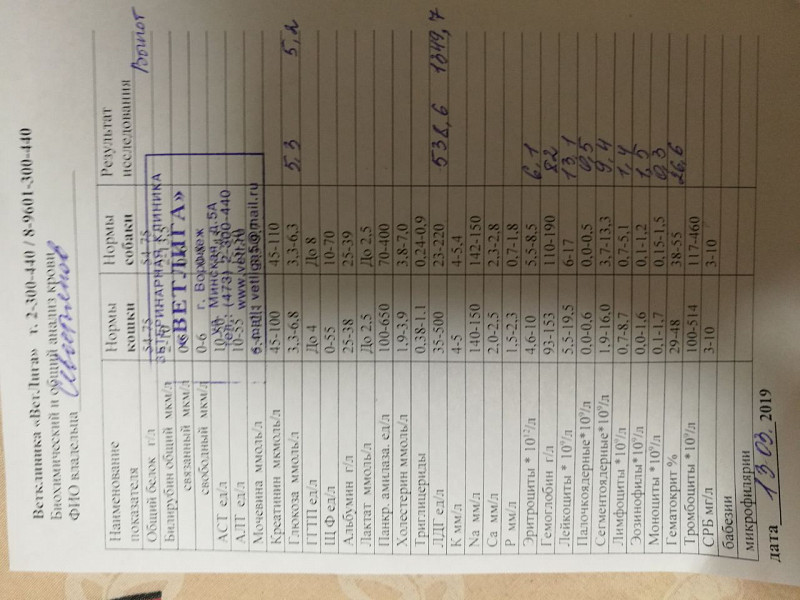 Ветклиника «ВетЛига» т. 2-300-440 / 8-9601-300-440
Биохимический и общий анализ крови
ФИО владельца
Наименование показателя Нормы кошки Нормы собаки Результат исследования Выпот
Общий белок г/л 54-75 54-75
Билирубин общий мкм/л
связанный мкм/л
свободный мкм/л 0-6
АСТ ед/л 10-50
АЛТ ед/л 10-55
Мочевина ммоль/л
Креатинин мкмоль/л 45-100 45-110
Глюкоза ммоль/л 3,3-6,8 3,3-6,3 5,3 5,2
ГГТП ед/л До 4 До 8
ЩФ ед/л 0-55 10-70
Альбумин г/л 25-38 25-39
Лактат ммоль/л До 2,5 До 2,5
Панкр. амилаза. ед/л 100-650 70-400
Холестерин ммоль/л 1,9-3,9 3,8-7,0
Триглицериды 0,38-1.1 0,24-0,9
ЛДГ ед/л 35-500 23-220 538,6 1349,7
K мм/л 4-5 4-5,4
Na мм/л 140-150 142-150
Ca мм/л 2,0-2,5 2,3-2,8
P мм/л 1,5-2,3 0,7-1,8
Эритроциты * 10¹²/л 4,6-10 5,5-8,5 6,1
Гемоглобин г/л 93-153 110-190 82
Лейкоциты * 10⁹/л 5,5-19,5 6-17 13,1
Палочкоядерные*10⁹/л 0,0-0,6 0,0-0,5 0,5
Сегментоядерные*10⁹/л 1,9-16,0 3,7-13,3 9,4
Лимфоциты * 10⁹/л 0,7-8,7 0,7-5,1 1,4
Эозинофилы* 10⁹/л 0,0-1,6 0,1-1,2 1,5
Моноциты * 10⁹/л 0,1-1,7 0,15-1,5 0,3
Гематокрит % 29-48 38-55 26,6
Тромбоциты* 10⁹/л 100-514 117-460
СРБ мг/л 3-10 3-10
бабезии
микрофилярии
дата 13 03 2019
ВЕТЕРИНАРНАЯ КЛИНИКА
«ВЕТЛИГА»
г. Воронеж
Минская, д. 5А
тел.: (473) 2-300-440
www.vet
e-mail: vetliga5@mail.ru